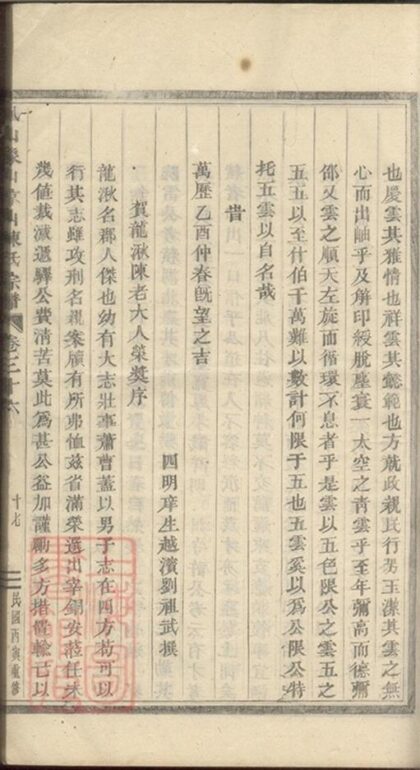 也慶雲其雅情也祥雲其懿範也方就政親民行男玉澤其雲之無
心而出岫乎及解印綬脫塵衰一太空之青雲乎至年彌高而德彌
邵又雲之順天左旋而循環不息者乎是雲以五色限公之雲五之
五五以至什伯千萬難以數計何限于五也五雲奚以為公限公特
托五雲以自名哉
旹
萬歷乙酉仲春既望之吉
賀龍湫陳老大人榮獎序
四明庠生越濱劉祖武撰
龍湫名郡人傑也幼有大志壯事蕭曹蓋以男子志在四方苟可以
行其志雖攻刑名視案牘有所弗恤茲省滿榮選出宰錫安蒞任未
幾值裁減遞驛公費清苦莫此為甚公益加謹勵多方措備輸已以
宗譜
卷之十六
十七
民國丙寅重修